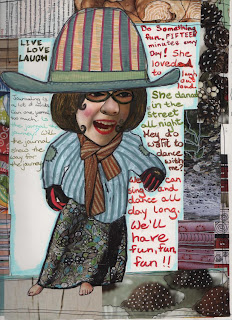 LIVE
LOVE
LAUGH
Do Something
fun, FIFTEEN
minutes every
Day! She
loved to
laugh
out
loud.
She danced
in the
street
all night
Hey do
want to
dance
with
me?
We can
sing and
dance all
day long,
We'll
have
fun, fun,
fun!!
the journal
show the
way for
the journey